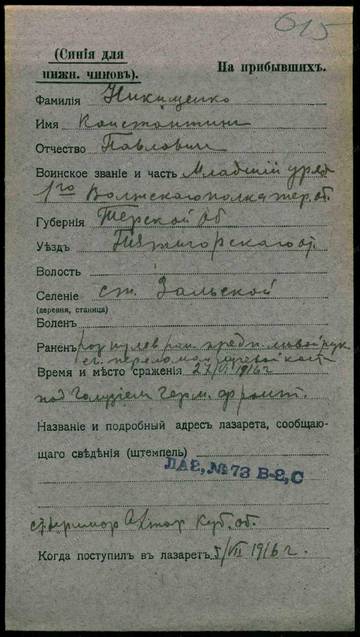 615
(Синія для нижн. чиновъ).
На прибывшихъ.
Фамилія Никищенко
Имя Константин
Отчество Павлович
Воинское званіе и часть Младшій уряд
1го Волжского полка тер. об.
Губернія Терской об
Уѣздъ Пятигорскаго от.
Волость
Селеніе ст. Зольской
(деревня, станица)
Боленъ
Раненъ пулев ран предпл лѣвой рук
с переломом лучевой кост
Время и мѣсто сраженія 27/VI 1916 г
под Герм. фронт.
Названіе и подробный адресъ лазарета, сообщаю-
щаго свѣдѣнія (штемпель)
ЛАЗ, № 73 В-З, С
Куб. об.
Когда поступил въ лазаретъ 5/VII 1916 г.